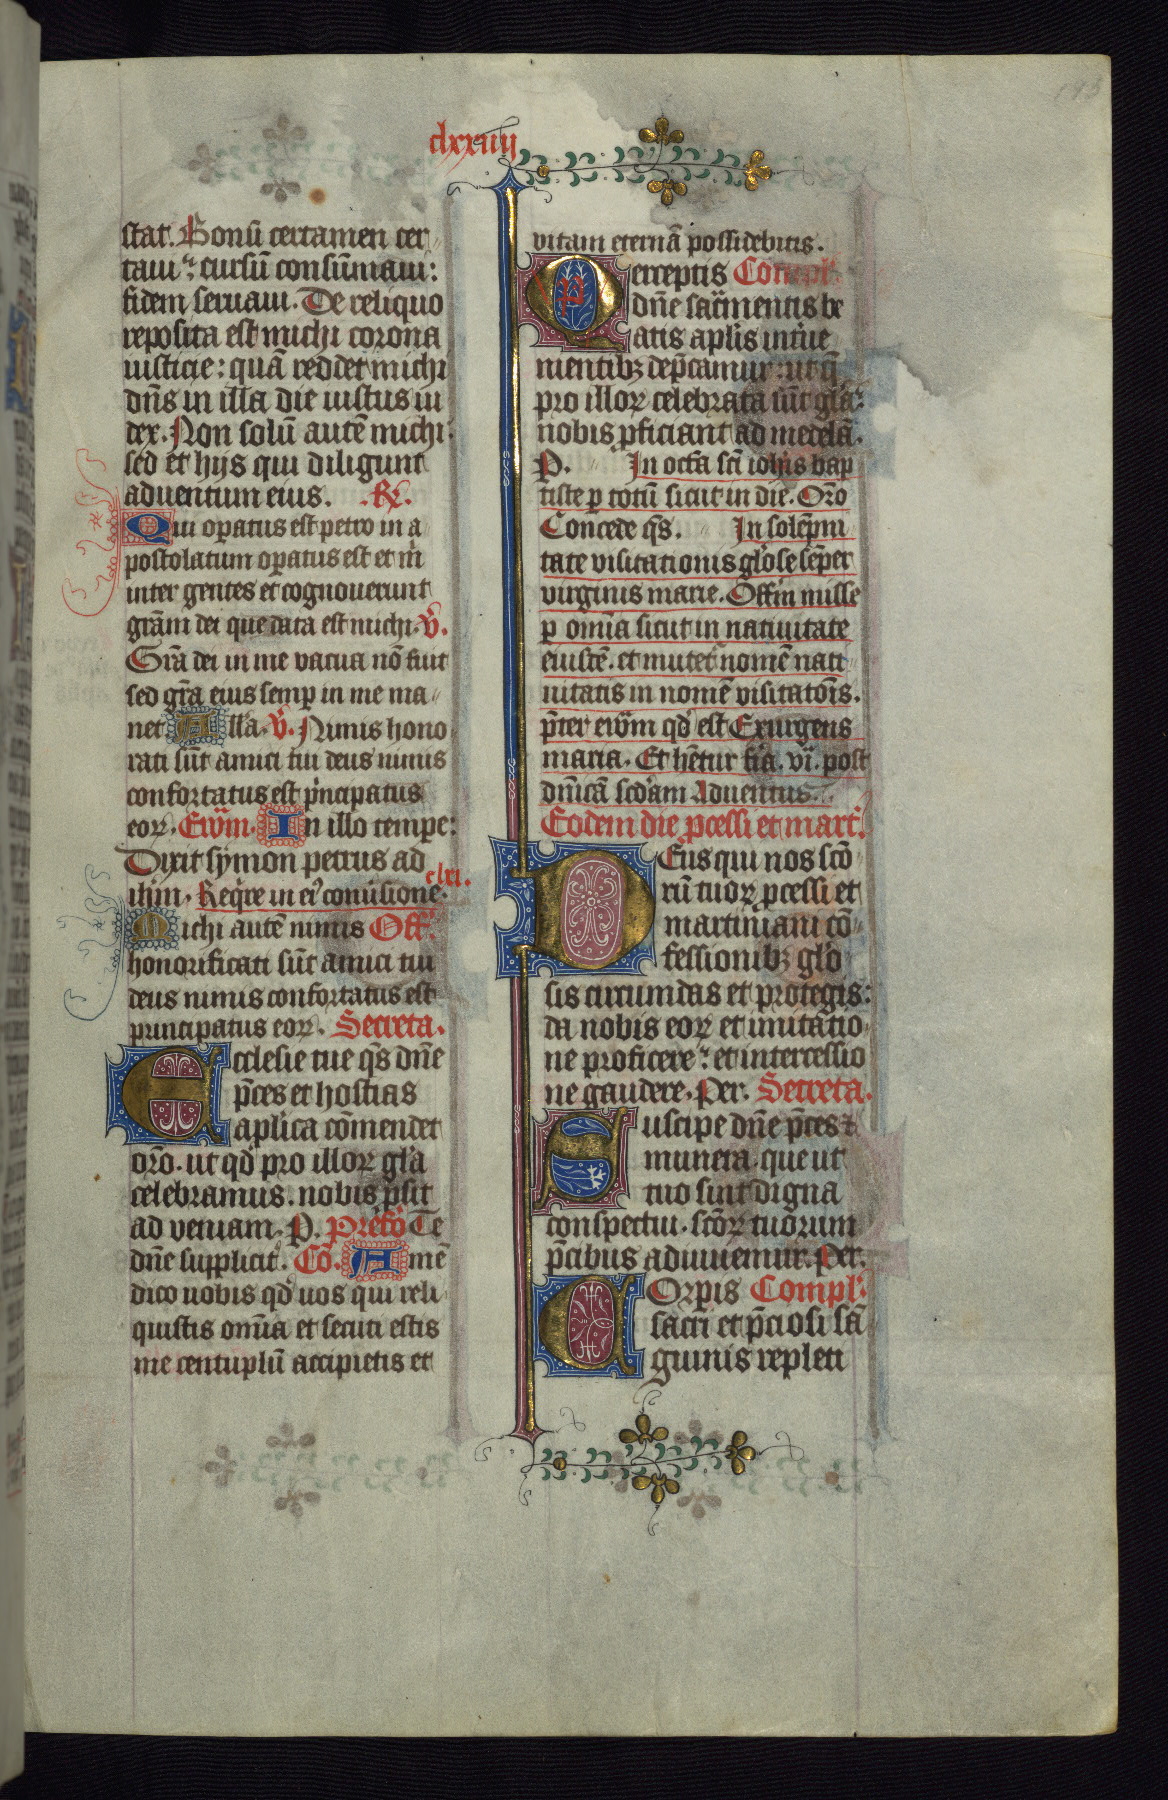 clxxiiij
stat. Bonū certamen cer
taui: cursū consūmaui:
fidem seruaui. De reliquo
reposita est michi corona
iusticie: quā reddet michi
dn̄s in illa die iustus iu
dex. Non solū autē michi:
sed et hijs qui diligunt
aduentum eius. R̄.
Qui op̄atus est petro in a
postolatum op̄atus est et m̄
inter gentes et cognouerunt
grām dei que data est michi. V̄.
Grā dei in me vacua nō fuit
sed grā eius semp̄ in me ma
net. Alla. V̄. Nimis hono
rati sūt amici tui deus nimis
confortatus est p̄ncipatus
eoꝝ. Ewm̄. In illo tempe:
Dixit symon petrus ad
ihm. Req̄re in ei9 cōuersione. clxi.
Michi autē nimis Off.
honorificati sūt amici tui
deus nimis confortatus est
principatus eoꝝ. Secreta.
Ecclesie tue q̄s dn̄e
p̄ces et hostias
ap̄lica cōmendet
orō. ut qd̄ pro illoꝝ glā
celebramus. nobis p̄sit
ad veniam. P. Prefō Te
dn̄e supplicit. Cō. Amē
dico uobis qd̄ uos qui reli
quistis omīa et secuti estis
me centuplū accipietis et
vitam eternā possidebitis.
Perceptis Compl.
dn̄e sac̄mentis be
atis ap̄lis int̄ue
nientibꝫ dep̄camur: ut q̄
pro illoꝝ celebrata sūt glā:
nobis p̄ficiant ad medelā.
P. In octā sc̄i ioh̄is bap
tiste p̄ totū sicut in die. Orō
Concede q̄s. In solēpni
tate visitationis gl̄ose sēper
virginis marie. Offm̄ misse
p̄ omīa sicut in natiuitate
eiusdē. et mutet̄ nomē nati
uitatis in nomē visitatōis.
p̄ter ewm̄ qd̄ est Exurgens
maria. Et hētur fīa. vi. post
dn̄icā sc̄dam Aduentus.
Eodem die p̄cessi et mart̄.
Deus qui nos scō
rū tuoꝝ p̄cessi et
martiniani cō
fessionibꝫ glo
sis circumdas et protegis:
da nobis eoꝝ et imitatio
ne proficere: et intercessio
ne gaudere. Per. Secreta.
Suscipe dn̄e p̄ces &
munera. que ut
tuo sint digna
conspectui. scōꝝ tuorum
p̄cibus adiuuemur. Per.
Corpis Compl.
sacri et p̄ciosi sā
guinis repleti